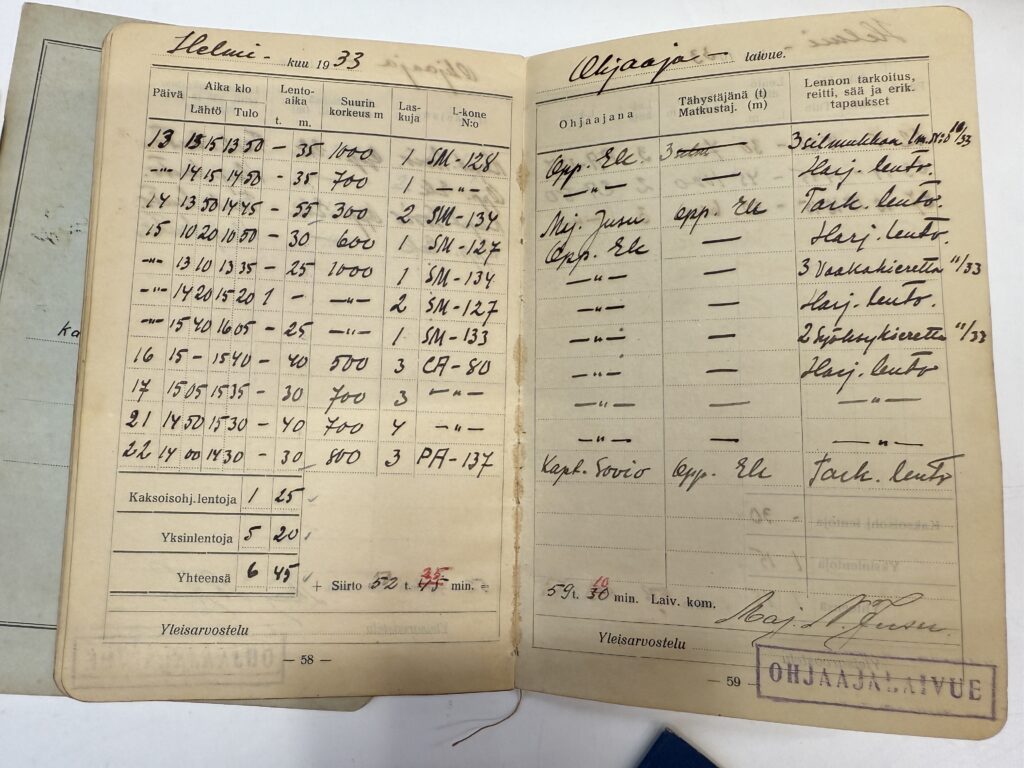 Helmi - kuu 1933
Päivä Aika klo Lähtö Tulo Lento-aika t. m. Suurin korkeus m Las-kuja L-kone N:o
13 1315 1350 - 35 1000 1 SM-128
-"- 1415 1450 - 35 700 1 -"-
14 1350 1445 - 55 300 2 SM-134
15 1020 1050 - 30 600 1 SM-127
-"- 1310 1335 - 25 1000 1 SM-134
-"- 1420 1520 1 - -"- 2 SM-127
-"- 1540 1605 - 25 -"- 1 SM-133
16 15- 1540 - 40 500 3 CA-80
17 1505 1535 - 30 700 3 -"-
21 1450 1530 - 40 700 4 -"-
22 1400 1430 - 30 800 3 PA-137
Kaksoisohj.lentoja 1 25
Yksinlentoja 5 20
Yhteensä 6 45 + Siirto 52 t. 35 45 min. =
Yleisarvostelu
— 58 —
Ohjaaja- laivue.
Ohjaajana Tähystäjänä (t) Matkustaj. (m) Lennon tarkoitus, reitti, sää ja erik. tapaukset
Opp. Ek 3 silmukkaa lm.N:o 10/33
-"- — Harj. lento.
Maj. Jusu opp. Ek Tark. lento.
Opp. Ek — Harj. lento.
-"- — 3 Vaakakierettä 11/33
-"- — Harj. lento.
-"- — 2 Syöksykierettä 11/33
-"- — Harj. lento
-"- — -"-
-"- — -"-
Kapt. Sovio Opp. Ek Tark. lento
59 t. 10 30 min. Laiv. kom. Maj. N. Jusu.
Yleisarvostelu
— 59 —
OHJAAJALAIVUE